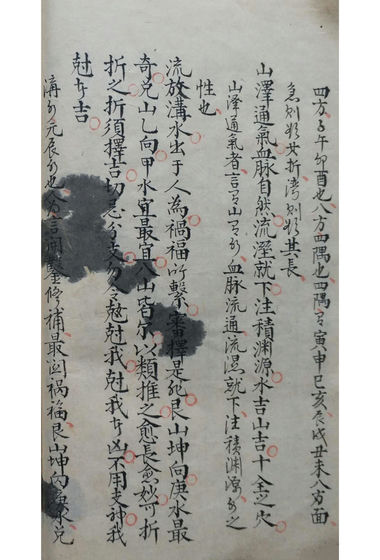 四方子午卯酉也八方四隅也四隅者寅申巳亥辰戌丑未八方面
急則欲其折濤則欲其長
山澤通氣血脉自然流溼就下注積渊源水吉山吉十全之穴
山澤通氣者言山有血脉流通流濕就下注積渊源水之
性也
流放溝水出于人為禍福所繫審擇是死艮山坤向庚水最
奇兑山乙向甲水宜最宜八山皆尔以類推之愈長愈妙可折
折之折須擇吉切忌分支勿令尅尅我尅我者凶不用支神我
尅者吉
溝分元辰水也今言開鑿修補最関禍福艮山坤向庚水兑